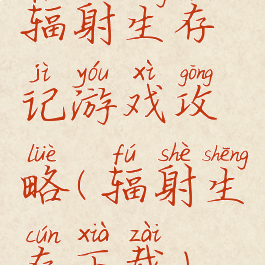 辐射生存
jì yóu xì gōng
记游戏攻
lüè fú shè shēng
略(辐射生
cún xià zài
存下载)